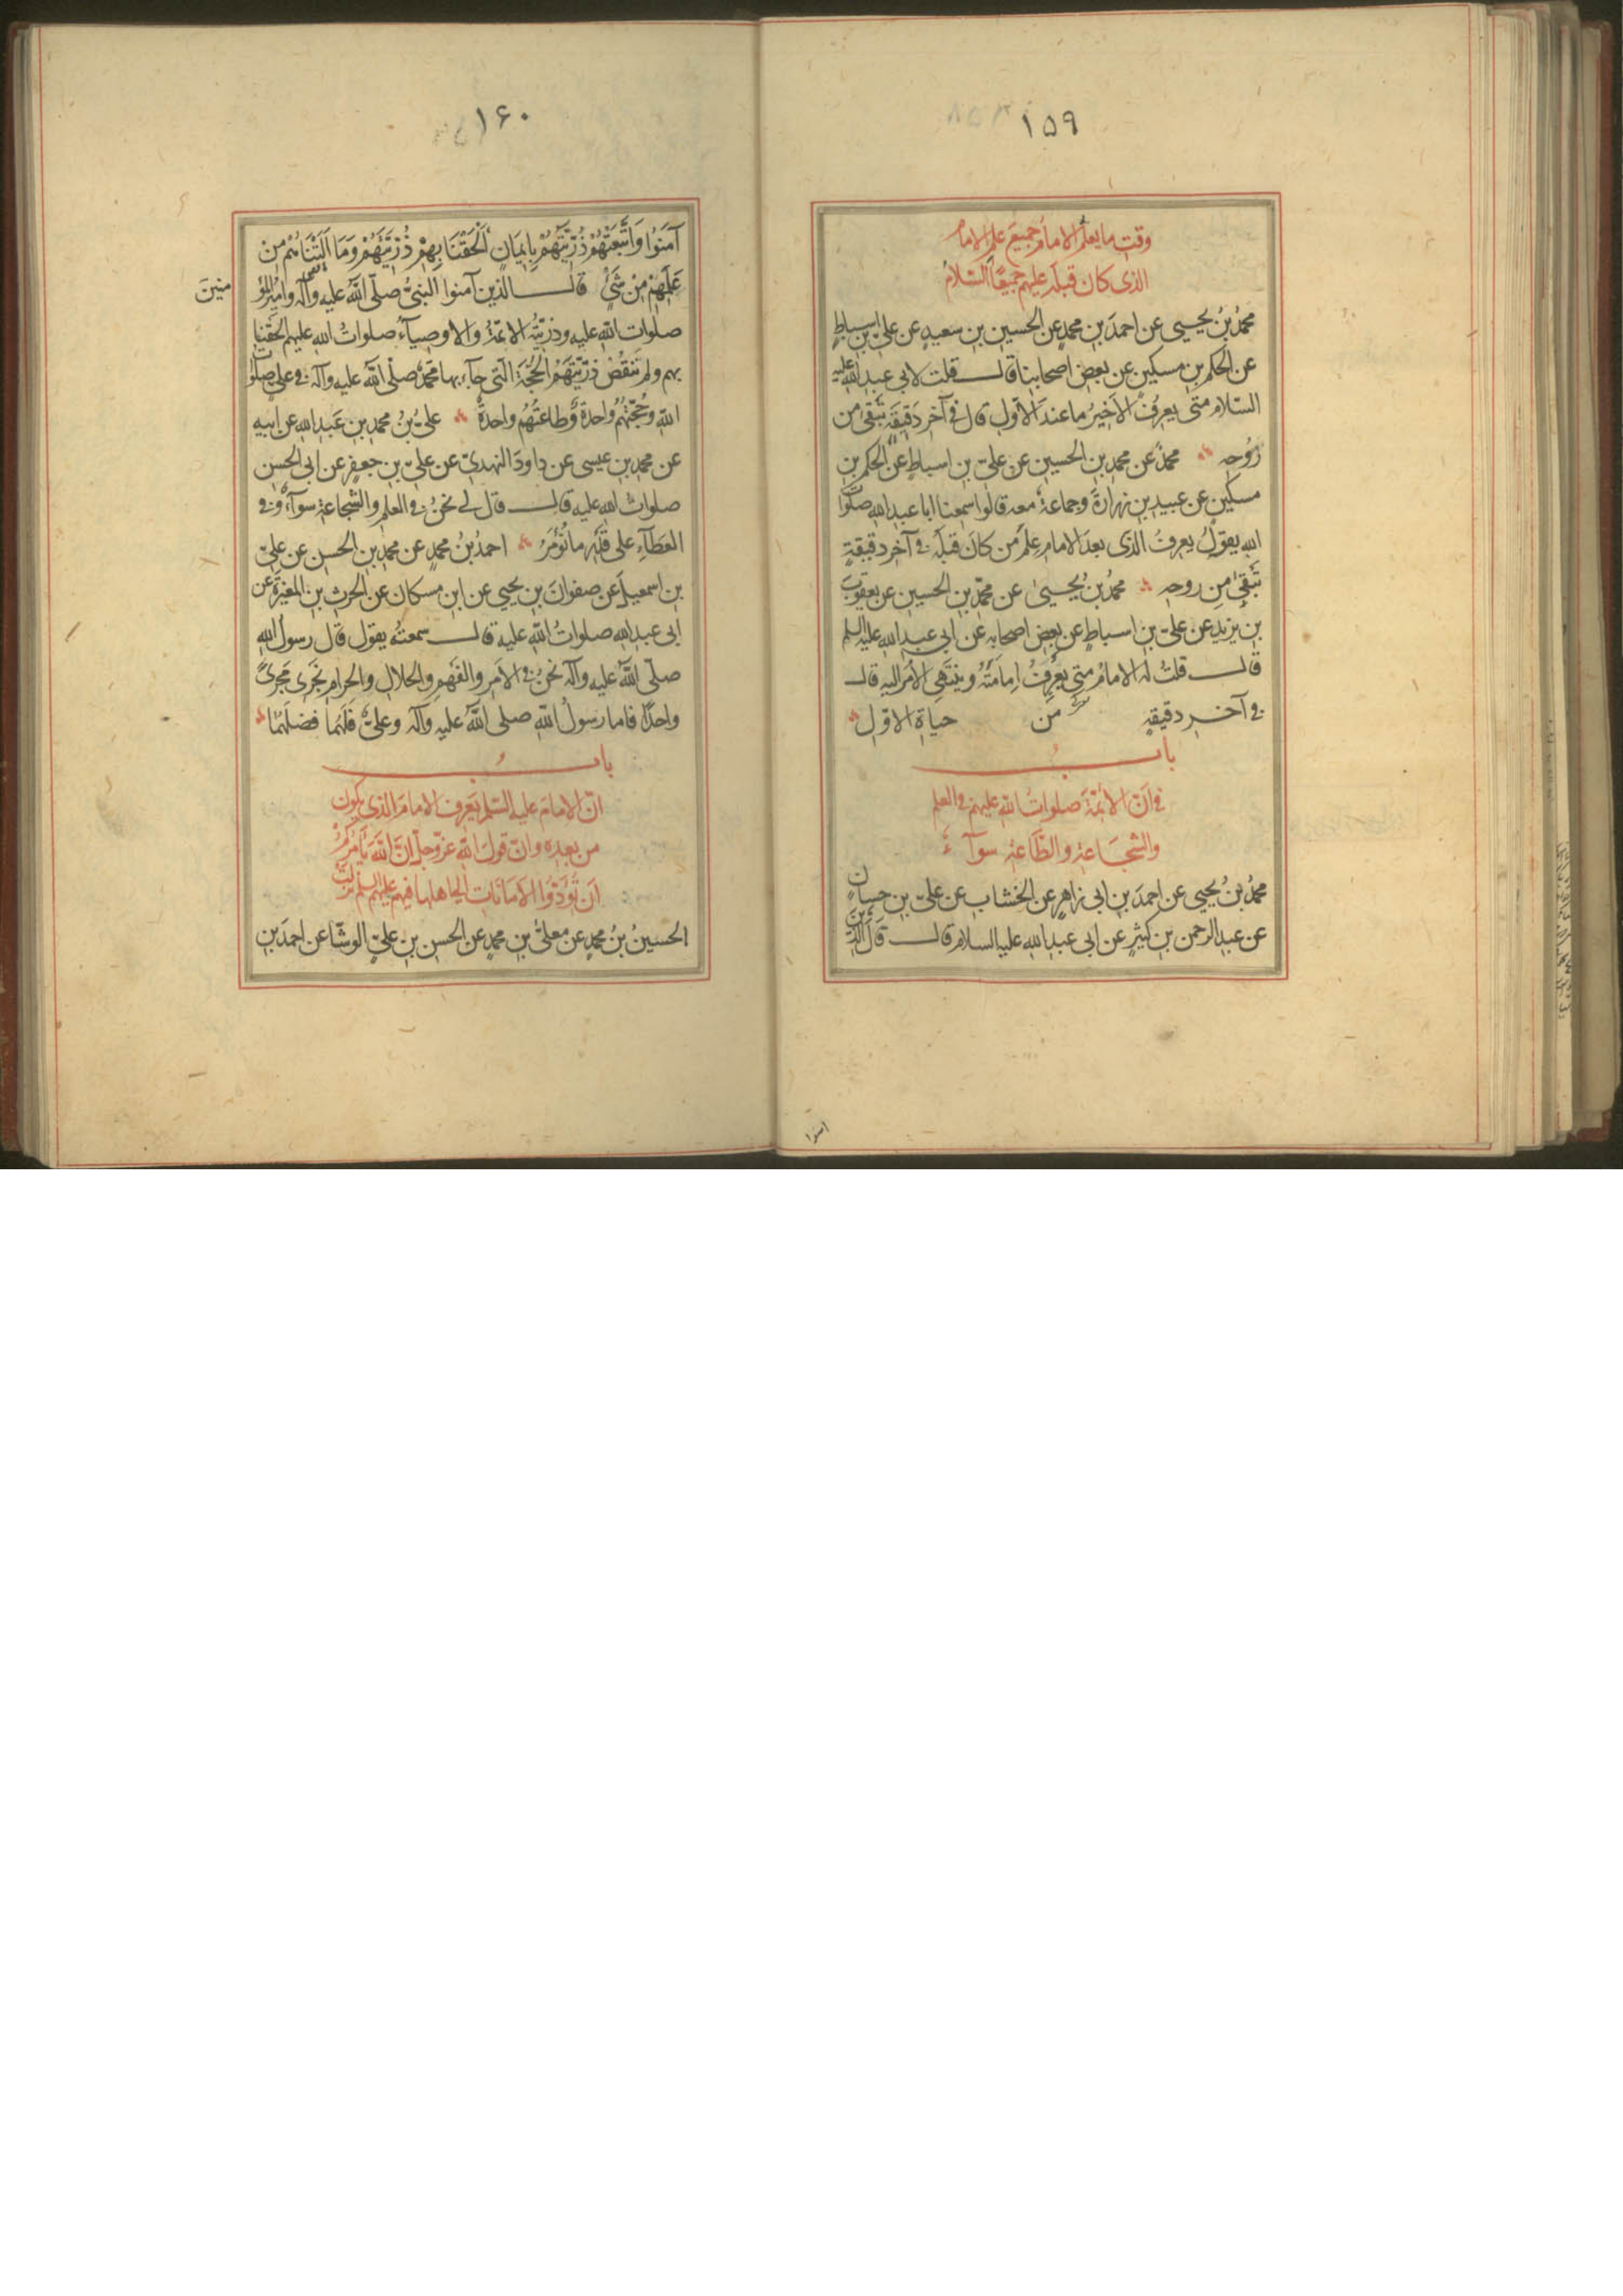 ۱۵۹
وقت ما يعلم الامام جميع علم الامام
الذى كان قبله عليهم جميعًا السّلام
محمدُ بنُ يحيى عن احمدَ بنِ محمدٍ عن الحسين بن سعيدٍ عن علىّ بن اسباطٍ
عن الحكم بن مسكين عن بعض اصحابنا قال قلت لابى عبد الله عليه
السّلام متى يعرفُ الاخيرُ ما عند الاوّل قال فى آخر دَقيقَةٍ تَبقى من
رُوحِه محمدٌ عن محمد بن الحسين عن علىّ بن اسباطٍ عن الحكم بن
مسكينٍ عن عبيد بن زرارةَ وجماعةٌ معه قالوا سمعنا ابا عبد الله صلوات
الله يقولُ يعرفُ الذى بعد الامام علمَ مَن كانَ قبلَه فى آخر دقيقةٍ
تَبقى مِن روحه محمدُ بنُ يحيىٰ عن محمّدِ بن الحسين عن يعقوب
بن يزيد عن علىّ بن اسباطٍ عن بعض اصحابه عن ابى عبد الله عليه السلم
قال قلتُ له الامامُ متى يَعْرِفُ اِمامَتَهُ وينتَهى الاَمرُ اليه قال
فى آخر دقيقةٍ من حياة الاوّل
باب
فى اَنّ الأئمّةَ صلواتُ الله عليهم فى العلم
والشجاعة والطّاعة سوآء
محمدُ بنُ يحيى عن احمدَ بن ابى زاهرٍ عن الخشاب عن علىّ بن حسان
عن عبد الرحمن بن كثيرٍ عن ابى عبد الله عليه السلام قال قَالَ الله الّذين
۱۶۰
آمَنُوا وَاتَّبَعَتْهُمْ ذُرِّيَّتُهُمْ بِاِيمَانٍ اَلْحَقْنَا بِهِمْ ذُرِّيَّتَهُمْ وَمَا اَلَتْنَاهُمْ مِنْ
عَمَلِهِمْ مِنْ شَىْءٍ قال الذين آمنوا النبىُّ صلّى الله عليه وآله وامير المؤ
منينَ
صلوات الله عليه وذرّيّتُه الائمّةُ والاوصياءُ صلواتُ الله عليهم الحَقنا
بهم ولم نَنقُصْ ذرّيّتَهَمْ الحُجّةَ الّتى جآء بها محمّدٌ صلّى الله عليه وآله فى علىٍّ صلوات
الله وحُجّتُهُم واحدةٌ وطاعتُهُم واحدةٌ علىُّ بنُ محمد بن عَبد الله عن ابيه
عن محمد بن عيسى عن داودَ النهدىّ عن علىّ بن جعفرٍ عن ابى الحسن
صلواتُ الله عليه قال قال لى نحنُ فى العلم والشجاعة سوآءٌ وفى
العَطآءِ على قَدْرِ ما نُؤمَرُ احمدُ بنُ محمدٍ عن محمد بن الحسن عن علىّ
بن اسمعيلَ عن صفوانَ بن يحيى عن ابن مسكان عن الحرث بن المغيرة عن
ابى عبد الله صلواتُ الله عليه قال سمعتُه يقول قال رسولُ الله
صلّى الله عليه وآله نحنُ فى الاَمر والفَهم والحلال والحرام نَجرى مَجرىً
واحدًا فاما رسولُ الله صلى الله عليه وآله وعلىٌّ فَلَهُما فضلُهُما
باب
انّ الامامَ عليه السّلم يَعرف الامامَ الذى يكون
من بعده وانّ قول الله عزّ وجلّ اِنَّ اللهَ يَأمُرُكُمْ
اَن تُؤَدّوا الاَمانَات الى اهلها فيهم عليهم السلم نزلت
الحسينُ بنُ محمدٍ عن معلىّ بن محمدٍ عن الحسن بن علىّ الوشّا عن احمدَ بن